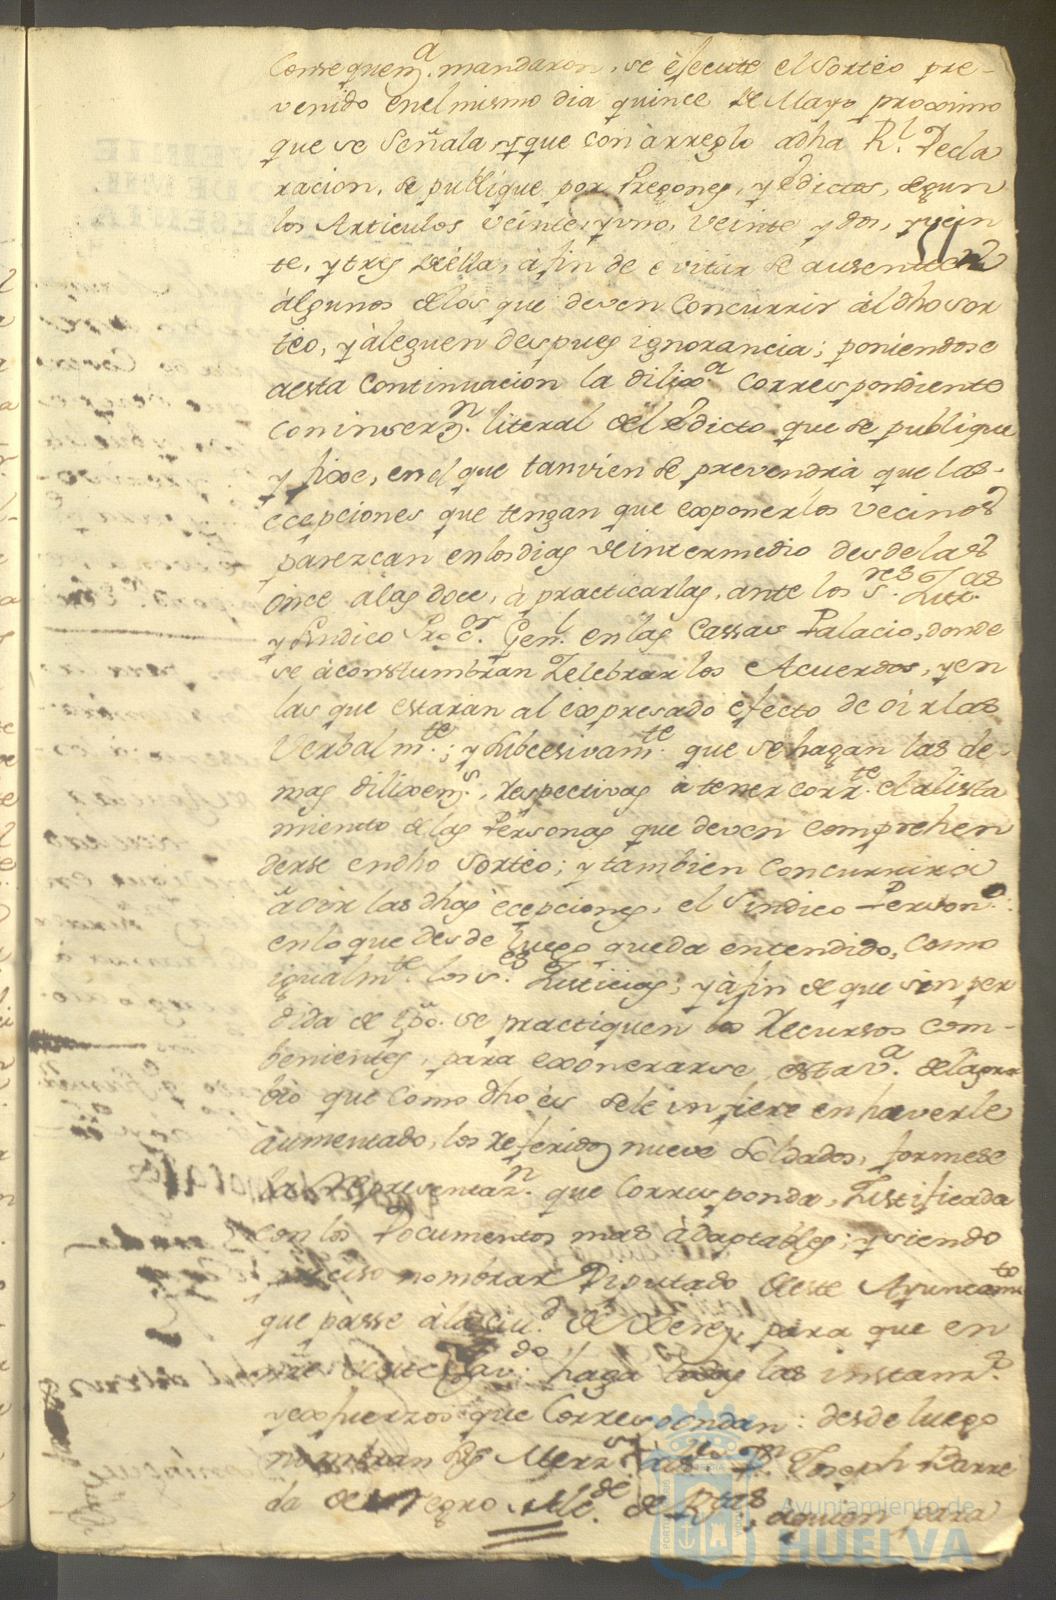 Consequem.a mandaron, se èjecute el Sorteo pre-
venido en el mismo dia quince de Mayo proximo
que se Señala, y que con àrreglo adha R.l Decla
racion, se publique por Pregones, y èdictos, segun
los Articulos veinte, y uno, veinte y dos, y vein
te, y tres de ella, à fin de evitar se ausenten
àlgunos de los que deven Concurrir àl dho sor
teo, y àleguen despues ignorancia; poniendose
aesta Continuacion la dilix.a correspondiente
con inserz.n literal del èdicto que se publique
y fixe, en el que tanvien se prevendrà que las
ecepciones que tengan que exponer los vecinos
parezcan en los dias de intermedio desde las
once àlas doce, à practicarlas, ante los S.res Just.as
y Sindico Proc.or Gen.l en las Cassas Palacio, donde
se àconstumbran Zelebrar los Acuerdos, y en
las que estaran al expresado èfecto de oirlas
Verbalm.te; y subcesivam.te que se hagan las de-
mas dilixem.s, respectivas a tener corr.te el alista
miento de las Personas que deven comprehen
derse en dho Sorteo; y tambien Concurrirà
à oir las dhas ècepciones, el Sindico Person.o
en lo que desde luego queda entendido, como
igualm.te los S.es Justicias; y à fin de que sin per
dida de tpo. se practiquen los Recursos com-
benientes, para exonerarse esta v.a del agra
vio que como dho es se le infiere en haverle
àumentado, los referidos nueve Soldados, formese
la representaz.n que corresponda, Justificada
con los Documentos mas àdaptables; y siendo
preciso nombrar Diputado de este Ayuncam.to
que passe àla ciu.d de Xerez, para que en
nre. de este Cav.do haga todas las instanz.s
y exfuerzos que Correspondan: desde luego
nombran sus Merz.s à D.n Joseph Barre
da de Alc.de de R.tas, aquien para
Ayuntamiento de
HUELVA